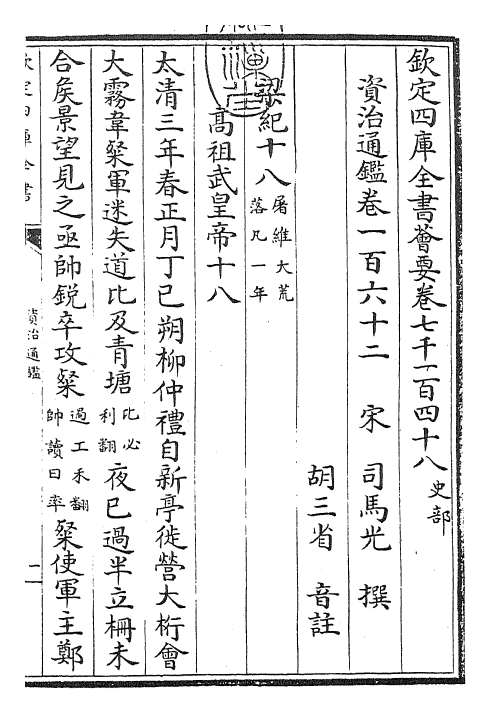 欽定四庫全書薈要卷七千一百四十八史部
資治通鑑卷一百六十二 宋 司馬光 撰
胡三省 音註
梁紀十八屠維大荒落凡一年
高祖武皇帝十八
太清三年春正月丁巳朔柳仲禮自新亭徙營大桁會
大霧韋粲軍迷失道比及青塘比必利翻夜已過半立柵未
合矦景望見之亟帥銳卒攻粲過工禾翻帥讀曰率粲使軍主鄭
資治通鑑
一